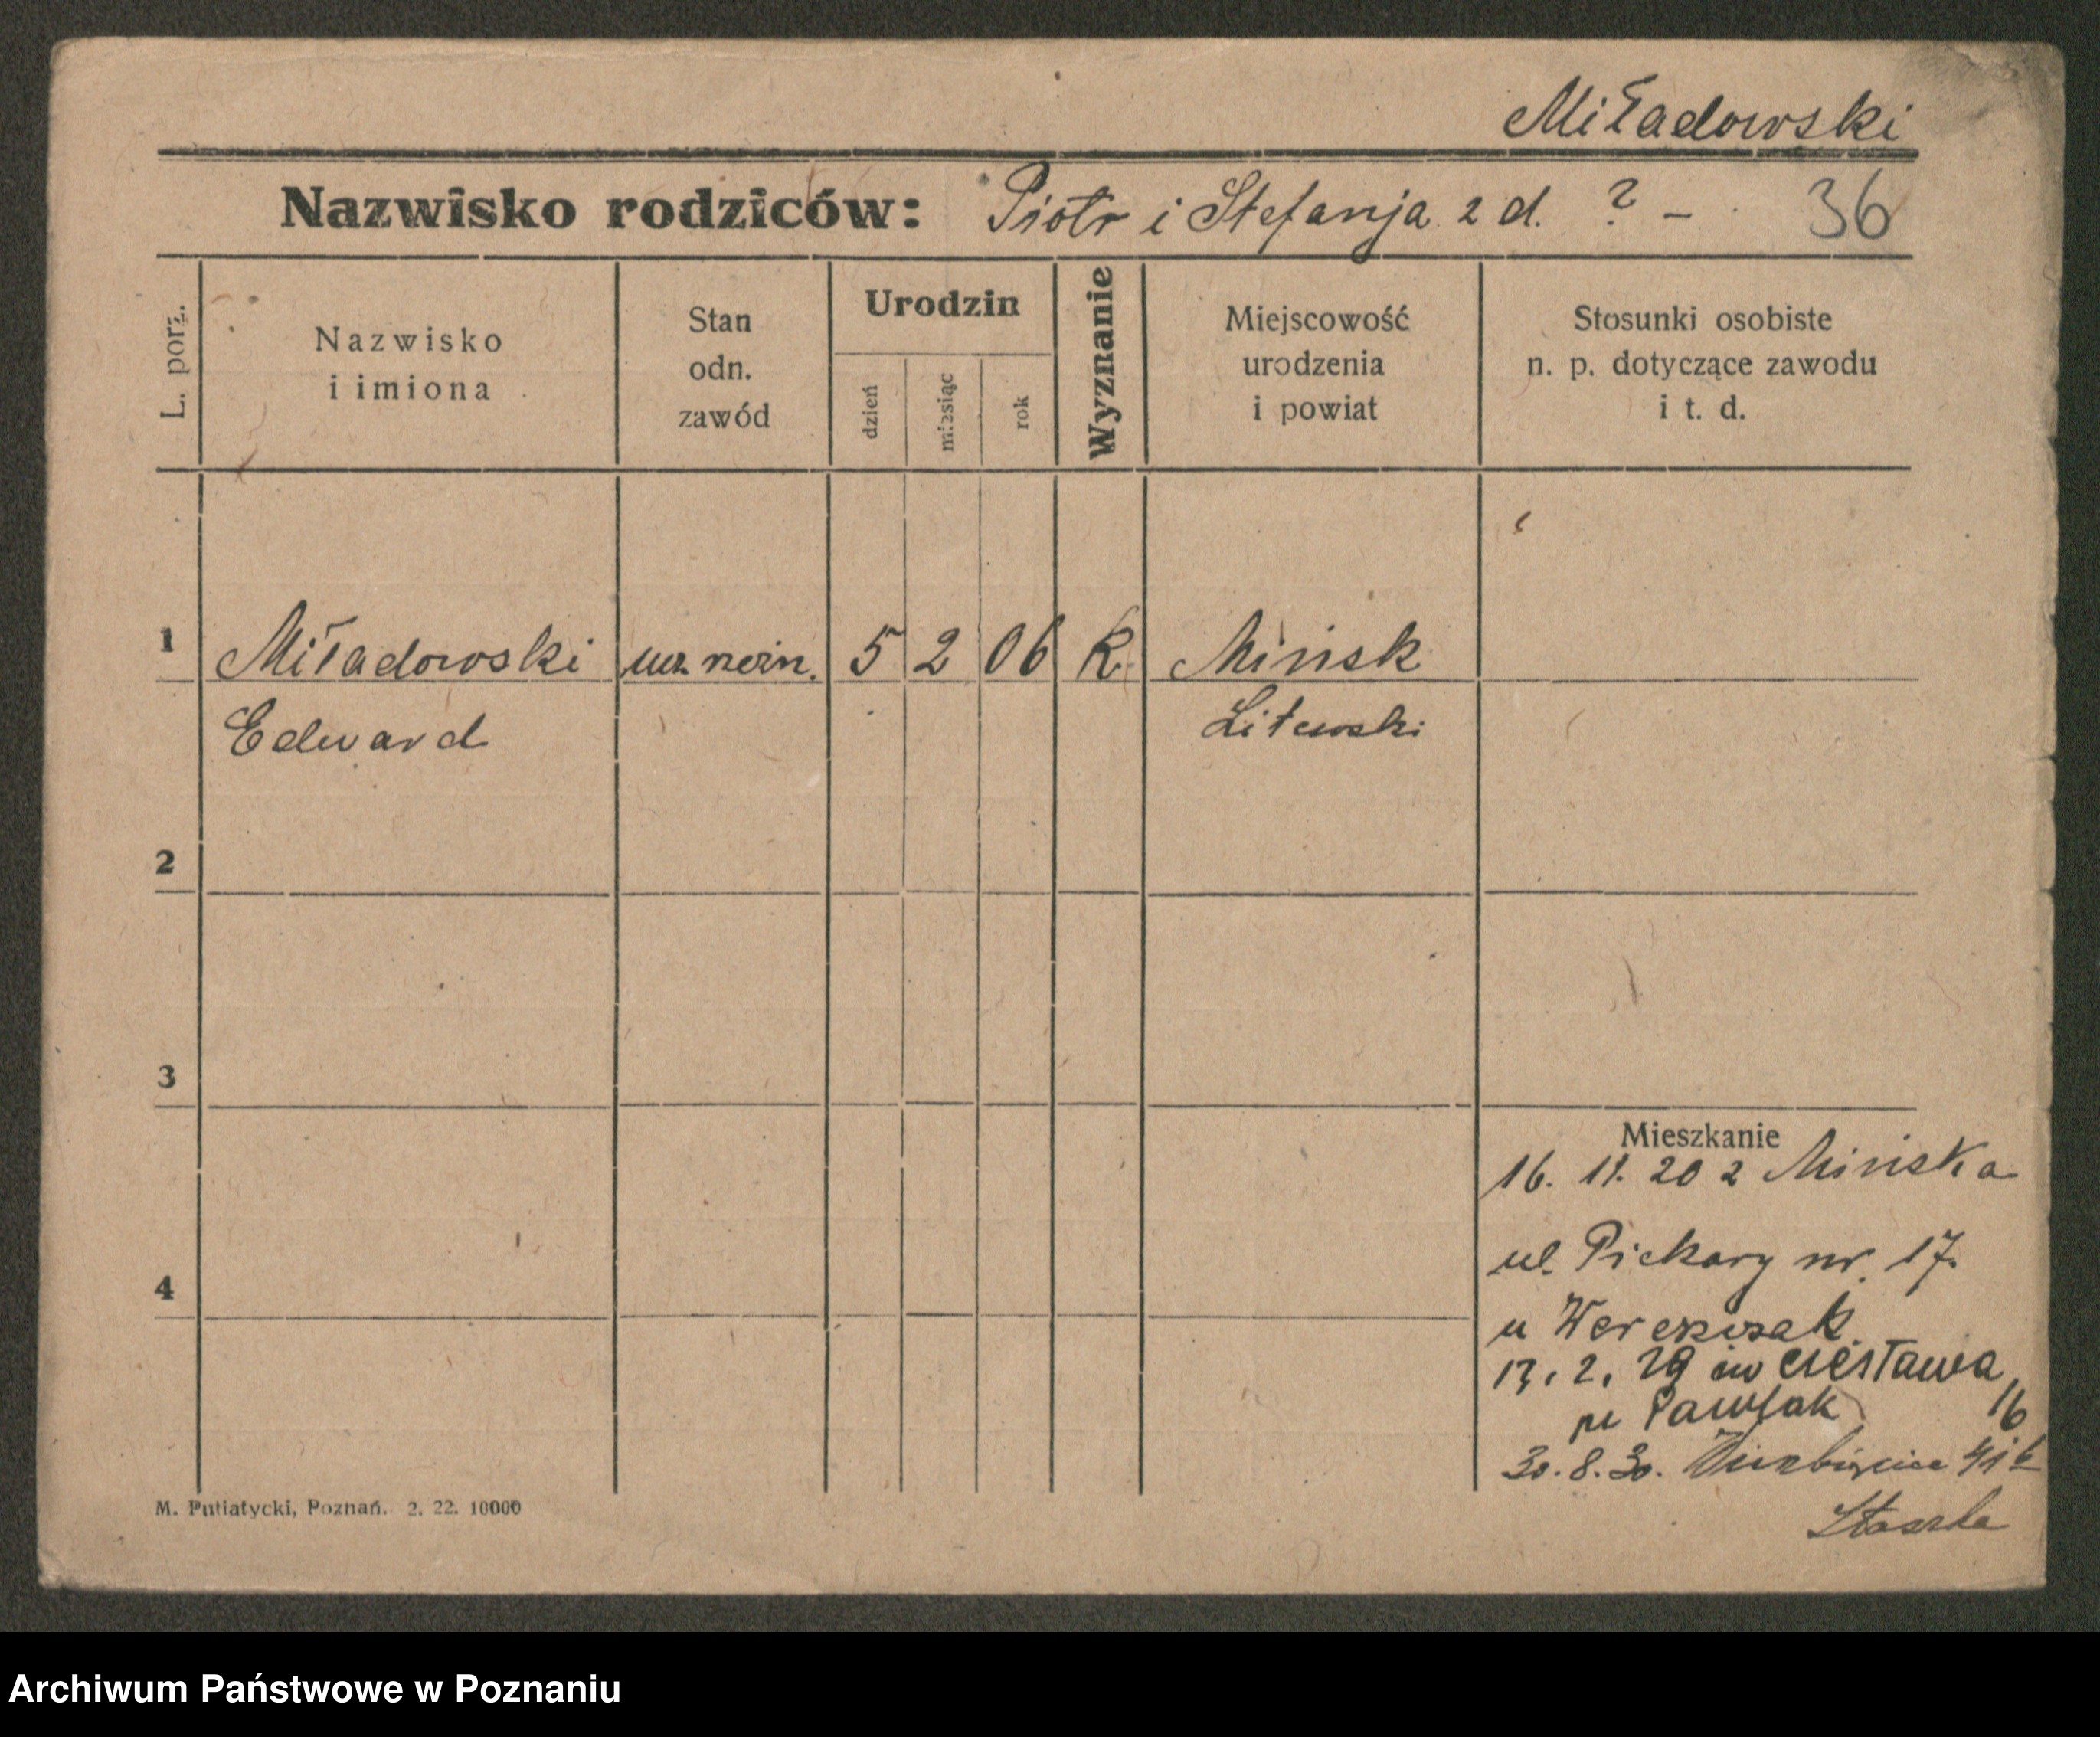 Miładowski
Nazwisko rodziców: Piotr i Stefanja z d. ? – 36
L. porz.
Nazwisko
i imiona
Stan
odn.
zawód
Urodzin
dzień
miesiąc
rok
Wyznanie
Miejscowość
urodzenia
i powiat
Stosunki osobiste
n. p. dotyczące zawodu
i t. d.
1 Miładowski 5 2 06 K. Mińsk
Edward Litewski
2
3
4
Mieszkanie
16. 11. 20 z Mińska
ul. Piekary nr. 17.
u
13. 2. 29 Czesława 16
Pawlak
30. 8. 30. Wierzbięcice
M. Putiatycki, Poznań. 2. 22. 10000
Archiwum Państwowe w Poznaniu